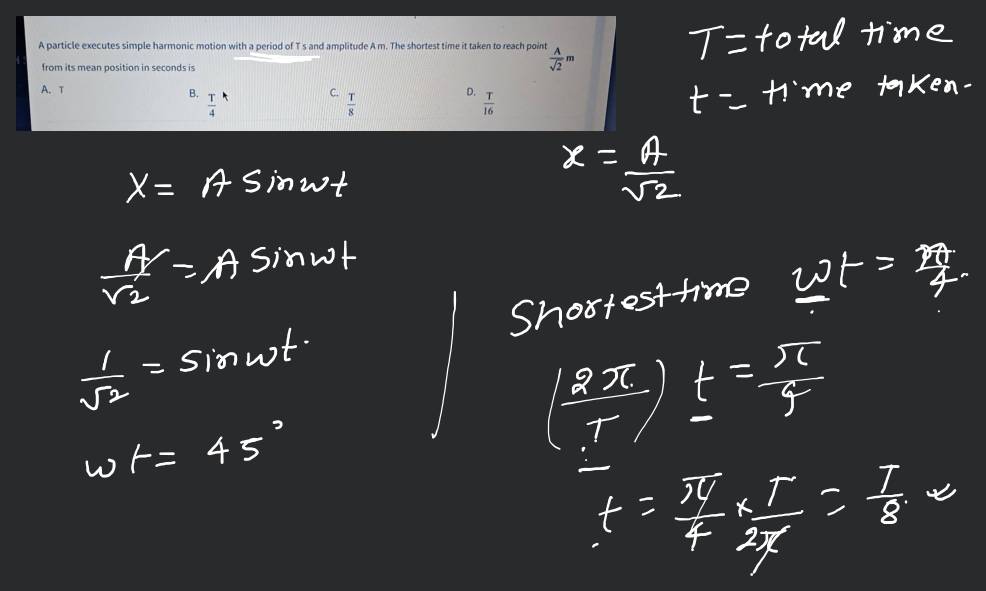 A particle executes simple harmonic motion with a period of T s and amplitude A m. The shortest time it taken to reach point A/√2 m
from its mean position in seconds is
A. T B. T/4 C. T/8 D. T/16
T = total time
t = time taken.
x = A/√2
X = A Sinwt
A/√2 = A Sinwt
1/√2 = Sinwt.
wt = 45°
Shortest time wt = π/4.
(2π/T) t = π/4
t = π/4 × T/2π = T/8